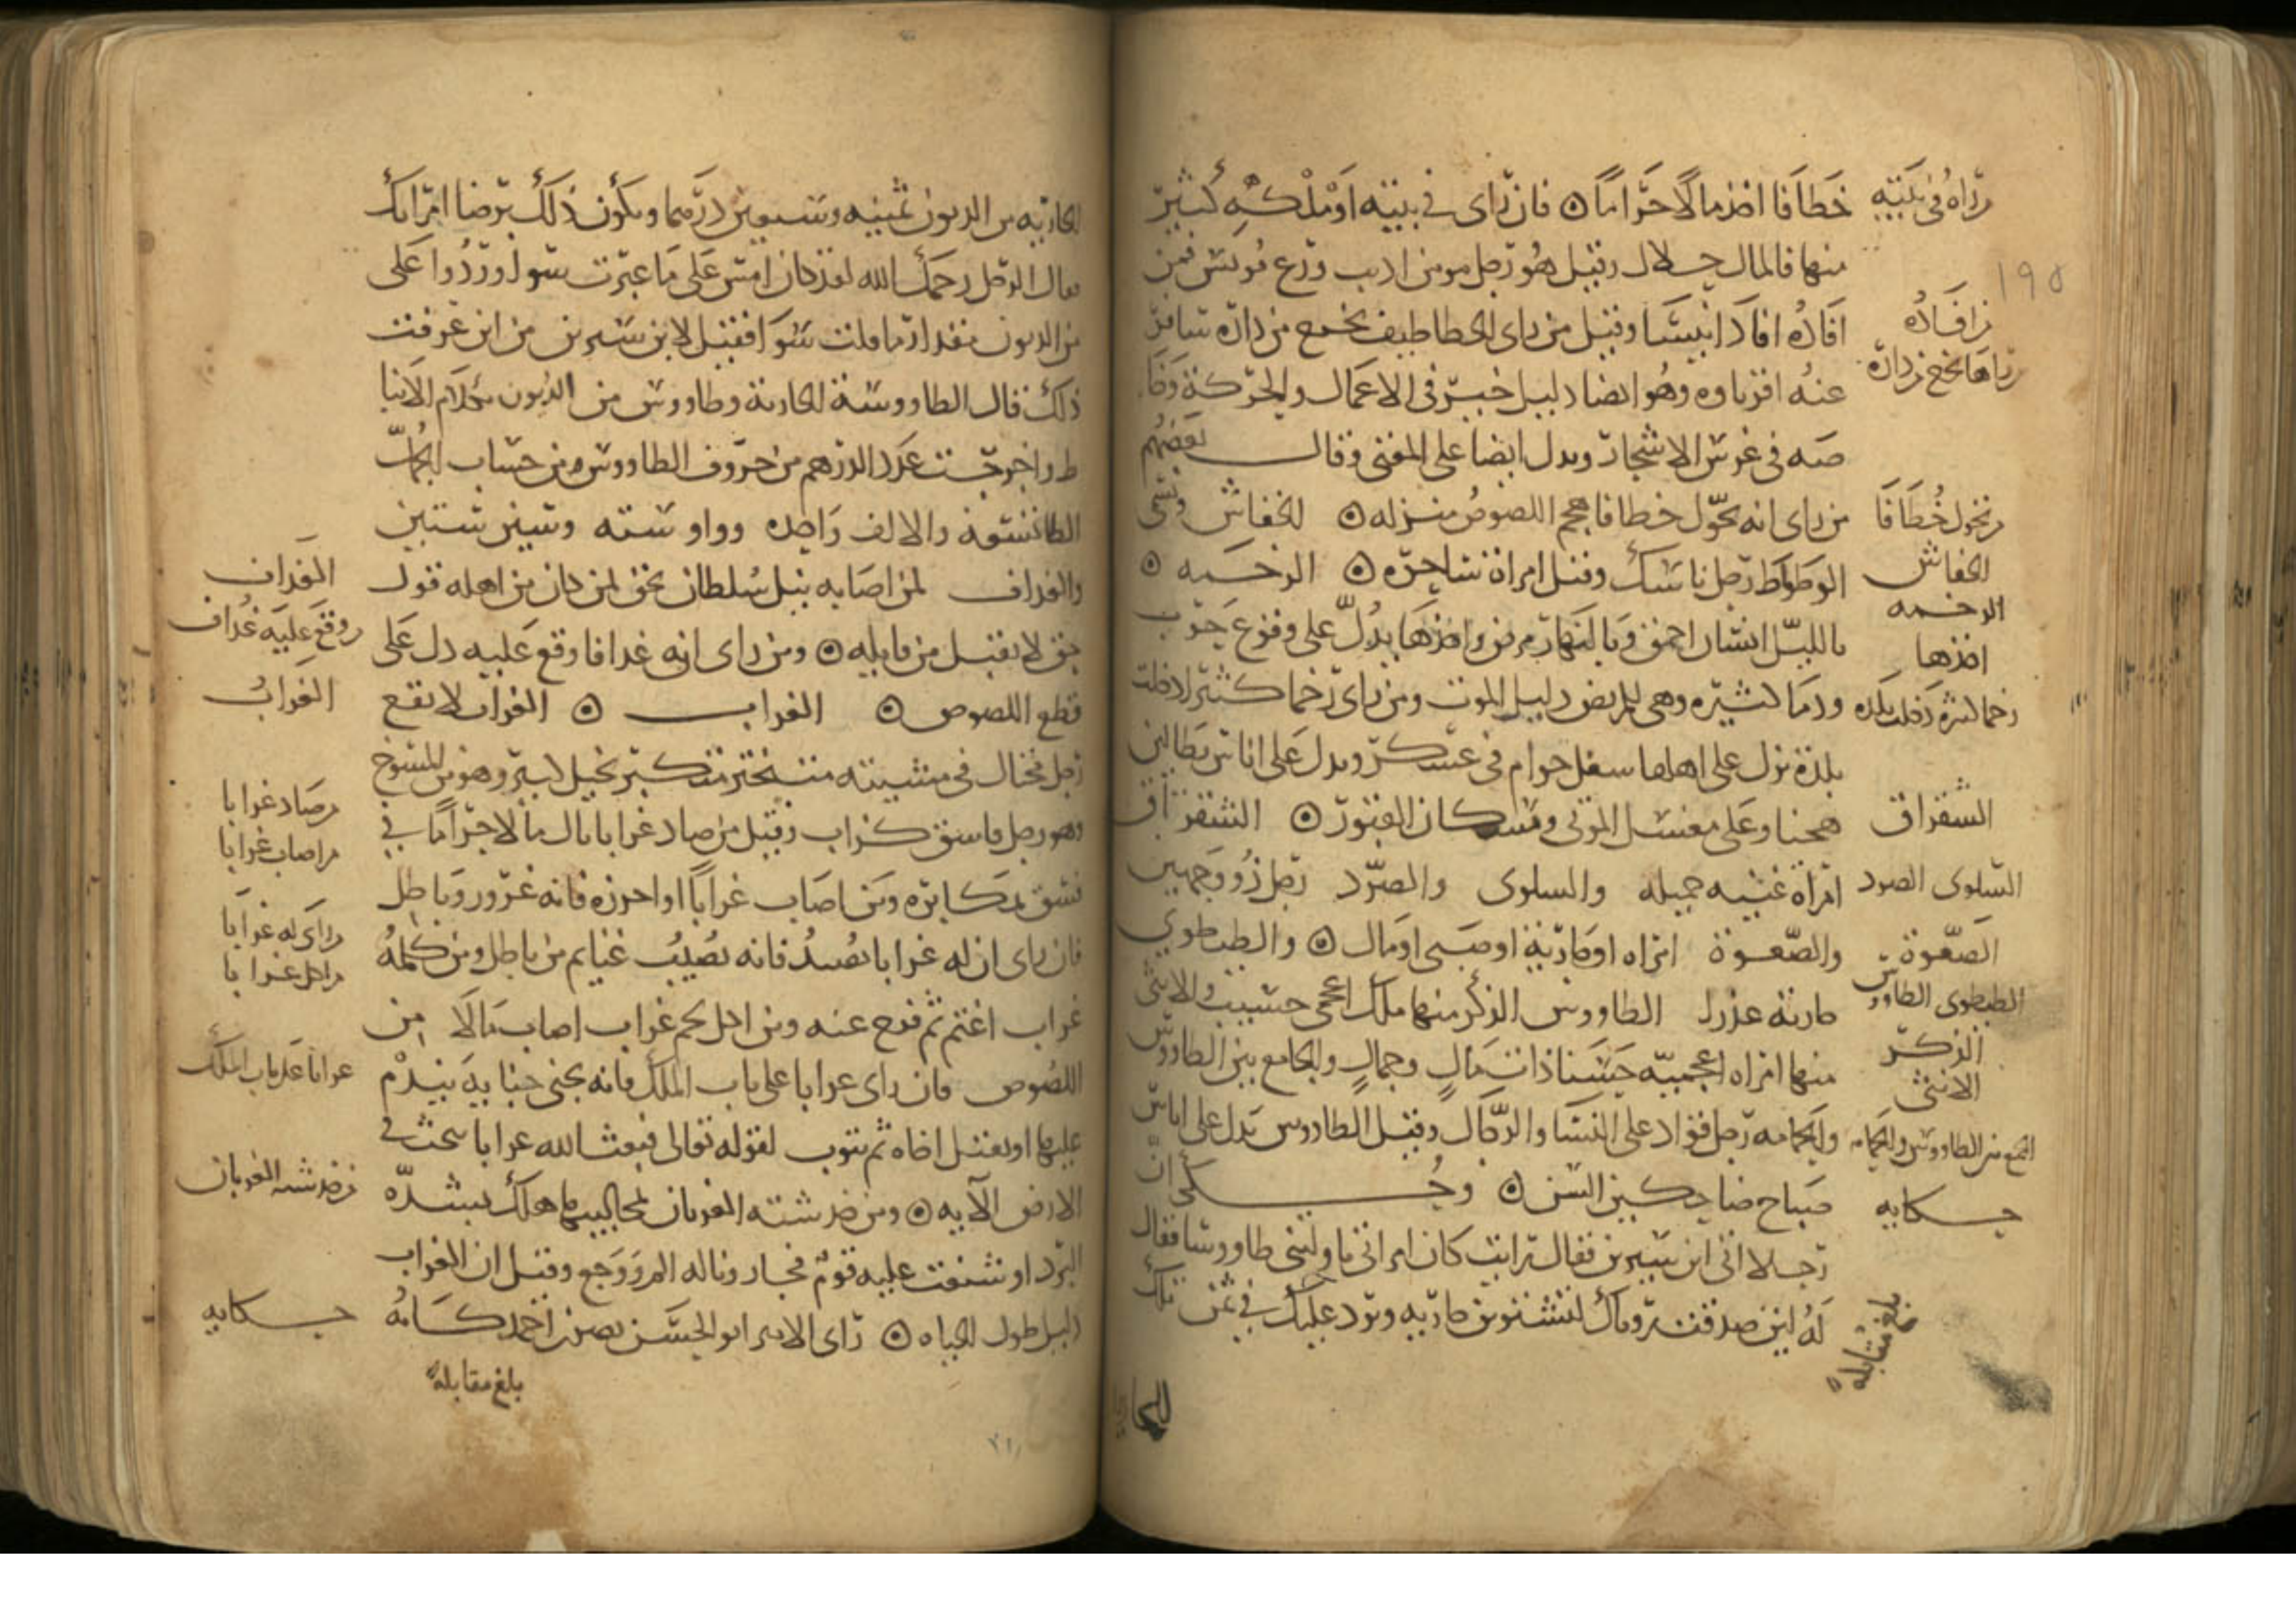 خطافا اخذ مالا حراما ۞ فان راى في بيته او ملكه كثير
منها فالمال حلال وقيل هو رجل مومن اديب ورع مونس فمن
افاده افاد انيسا وقيل من راى الخطاطيف تخرج من داره سافر
عنه اقرباوه وهو ايضا دليل خير في الاعمال والحركة وخا
صه في غرس الاشجار ويدل ايضا على المغني وقال بعضهم
من راى انه تحول خطافا هجم اللصوص منزله ۞ الخفاش وتسمى
الوطواط رجل ناسك وقيل امراة ساحره ۞ الرخمه ۞
بالليل انسان احمق وبالنهار مرض واخذها يدل على وقوع حرب
ودما كثيره وهي للمريض دليل الموت ومن راى رخما كثيرا دخلت
بلدة نزل على اهلها سفل حرام في عسكر ويدل على اناس بطالين
همجنا وعلى مغسل الموتى وسكان القبور ۞ الشقراق
امراة غنيه جميله والسلوى والصرد رجل ذو وجهين
والصعوة امراه او جارية او صبي او مال ۞ والطيطوي
جارية عذرا الطاووس الذكر منها ملك اعجمي حسيب والانثى
منها امراه اعجميه حسنا ذات مال وجمال والجامع بين الطاووس
والحمامه رجل قواد على النسا والرجال وقيل الطاووس تدل على اناس
صباح ضاحكين السن ۞ وحكى ان
رجلا اتى ابن سيرين فقال رايت كان امراتي ناولتني طاووسا فقال
له لين صدقت روياك لتشترين جاريه ويرد عليك في ثمن تلك
الجا
راه في بيته
من افاده
راها تخرج من داره
من تحول خطافا
الخفاش
الرخمه
اخذها
رخما كثيره دخلت بلده
الشقراق
السلوى الصرد
الصعوة
الطيطوى الطاووس
الذكر
الانثى
الجمع بين الطاووس والحمامه
حكايه
بلغ مقابلة
195
الجاريه من الديون ثمنيه وسبعين درهما ويكون ذلك برضا امراتك
فقال الرجل رحمك الله لقد كان امس على ما عبرت سوا وردوا على
من الديون مقدار ما قلت سوا فقيل لابن سيرين من اين عرفت
ذلك قال الطاووسة الجارية وطاووس من الديون بكلام الانبا
ط واخرجت عدد الدرهم من حروف الطاووس من حساب الجمل
الطا تسعة والالف واحده وواو سته وسين ستين
والغداف لمن اصابه نيل سلطان بحق لمن كان من اهله قول
حق لا يقبل من قايله ۞ ومن راى انه غدافا وقع عليه دل على
قطع اللصوص ۞ الغراب ۞ الغراب لا يقع
رجل مختال في مشيته متبختر متكبر بخيل
وهو رجل فاسق كذاب وقيل من صاد غرابا نال مالا حراما في
فسق بمكابره ومن اصاب غرابا او احرزه فانه غرور وباطل
فان راى ان له غرابا يصيد فانه يصيب غنايم من باطل ومن كلمه
غراب اغتم ثم فرج عنه ومن اكل لحم غراب اصاب مالا من
اللصوص فان راى غرابا على باب الملك فانه يجني جنايه يندم
عليها او يقتل اخاه ثم يتوب لقوله تعالى فبعث الله غرابا يبحث في
الارض الآيه ۞ ومن خدشته الغربان بمخاليبها هلك بشده
البرد او شنعت عليه قوم فجار وناله الم ووجع وقيل ان الغراب
دليل طول الحياه ۞ راى الامير ابو الحسن نصر بن احمد كانه
بلغ مقابلة
الغداف
وقع عليه غداف
الغراب
من صاد غرابا
من اصاب غرابا
راى له غرابا
من اكل غرابا
غرابا على باب الملك
من خدشته الغربان
حكايه